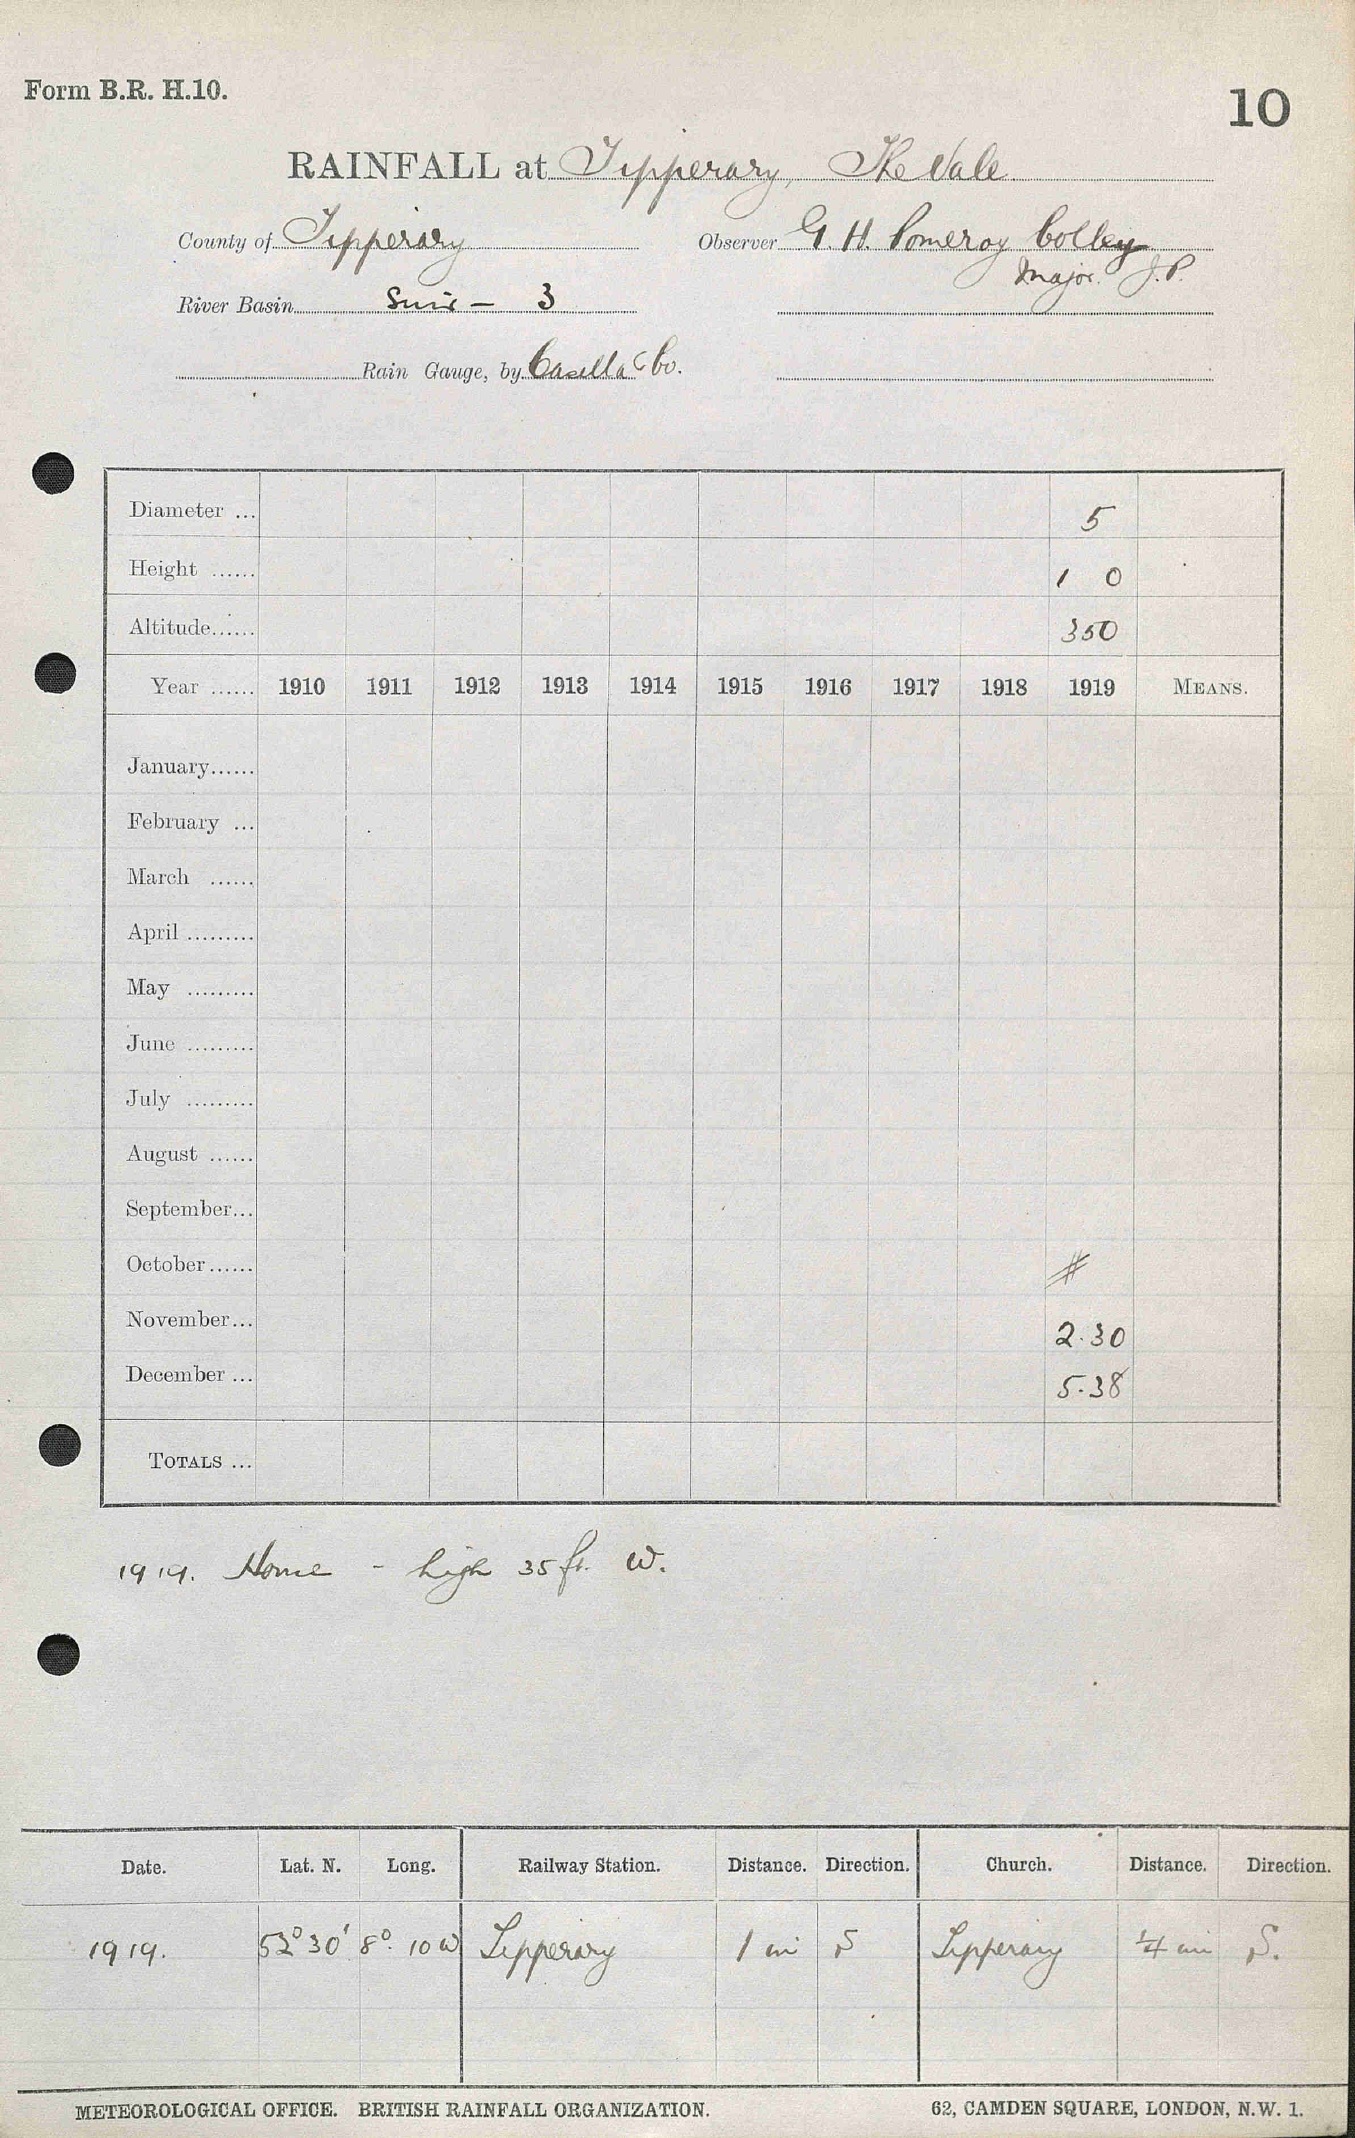 Form B.R. H.10.
10
RAINFALL at Tipperary, The Vale
County of Tipperary Observer G. H. Pomeroy Colley
Major. J.P.
River Basin Suir - 3
Rain Gauge, by Casella & Co.
Diameter ... 5
Height ...... 1 0
Altitude...... 350
Year ...... 1910 1911 1912 1913 1914 1915 1916 1917 1918 1919 MEANS.
January......
February ...
March ......
April .........
May .........
June .........
July .........
August ......
September...
October...... #
November... 2.30
December ... 5.38
TOTALS ...
1919. House - high 35 ft. W.
Date. Lat. N. Long. Railway Station. Distance. Direction. Church. Distance. Direction.
1919. 52° 30' 8° 10 W Tipperary 1 mi S Tipperary 1/4 mi S.
METEOROLOGICAL OFFICE. BRITISH RAINFALL ORGANIZATION. 62, CAMDEN SQUARE, LONDON, N.W. 1.